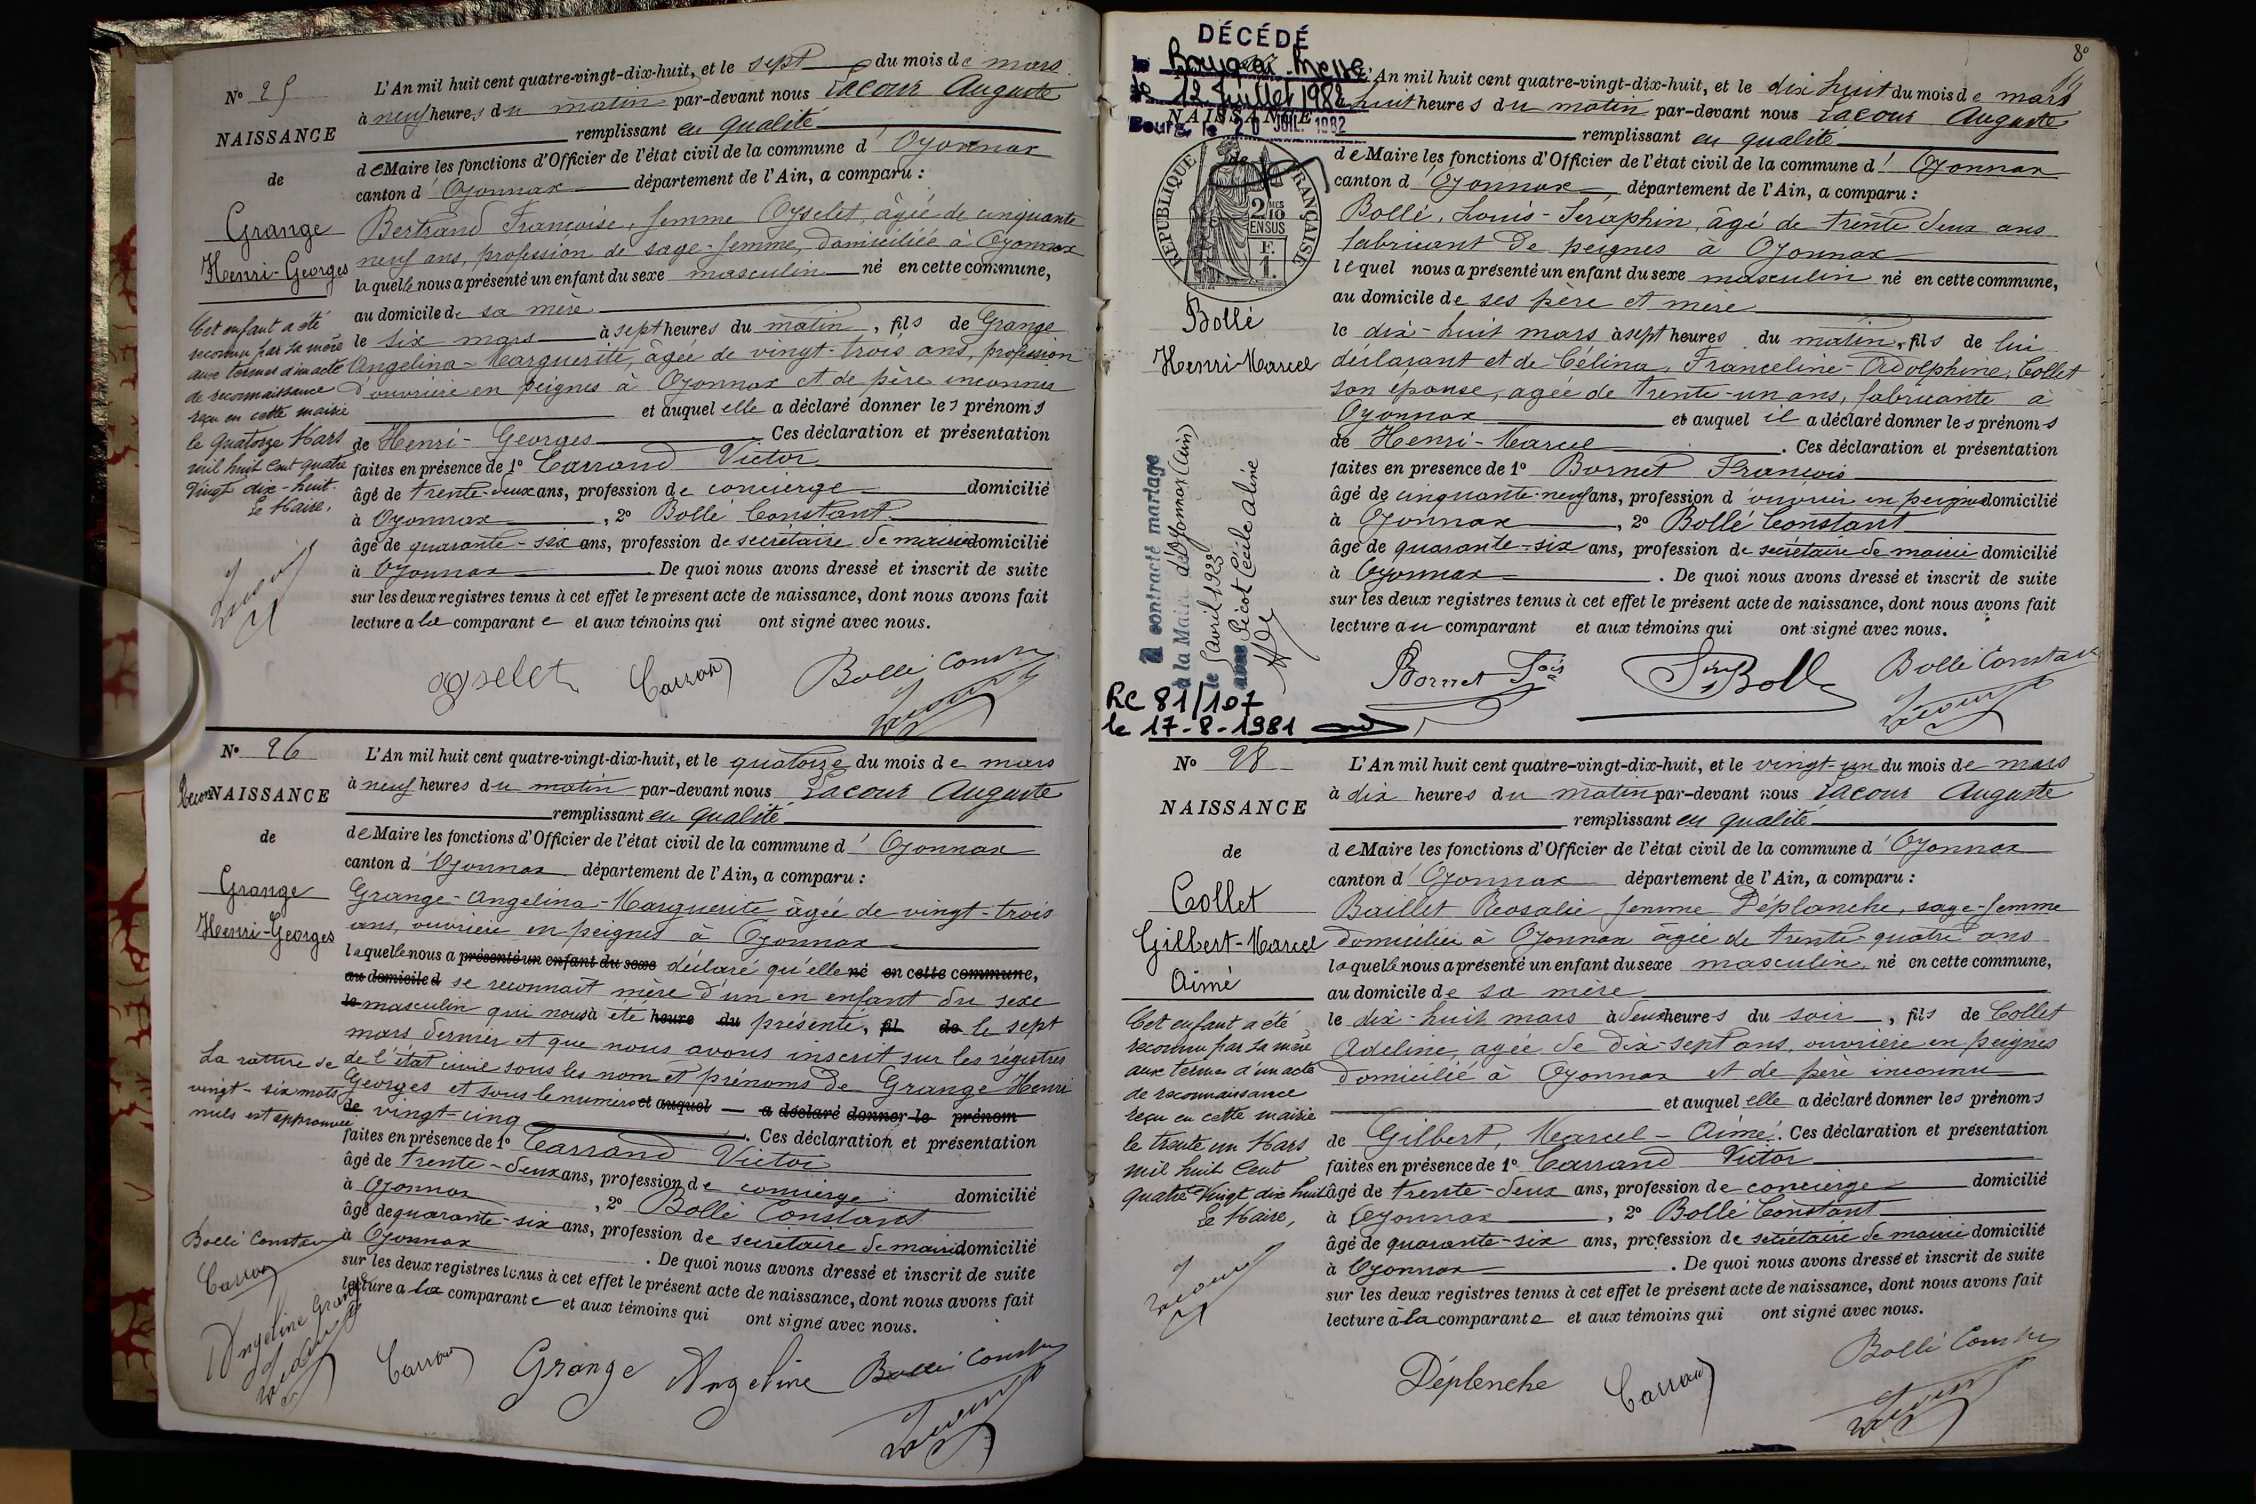 Nº 25
NAISSANCE
de
Grange
Henri-Georges
Cet enfant a été
reconnu par sa mère
aux termes d'un acte
de reconnaissance
reçu en cette mairie
le quatorze Mars
mil huit cent quatre
vingt dix-huit.
Le Maire,
L'An mil huit cent quatre-vingt-dix-huit, et le sept du mois de mars
à neuf heures du matin par-devant nous Lacour Auguste
remplissant en qualité
de Maire les fonctions d'Officier de l'état civil de la commune d'Oyonnax
canton d'Oyonnax département de l'Ain, a comparu :
Bertrand Françoise, femme Oyselet, âgée de cinquante
neuf ans, profession de sage-femme, domiciliée à Oyonnax
laquelle nous a présenté un enfant du sexe masculin né en cette commune,
au domicile de sa mère
le six mars à sept heures du matin, fils de Grange
Angelina-Marguerite, âgée de vingt-trois ans, profession
d'ouvrière en peignes à Oyonnax et de père inconnu
et auquel elle a déclaré donner les prénoms
de Henri-Georges Ces déclaration et présentation
faites en présence de 1º Carrand Victor
âgé de trente-deux ans, profession de concierge domicilié
à Oyonnax, 2º Bollé Constant
âgé de quarante-six ans, profession de secrétaire de mairie domicilié
à Oyonnax De quoi nous avons dressé et inscrit de suite
sur les deux registres tenus à cet effet le présent acte de naissance, dont nous avons fait
lecture a la comparante et aux témoins qui ont signé avec nous.
Oyselet Carrand Bollé Constant
Lacour
Nº 26
Recon NAISSANCE
de
Grange
Henri-Georges
La rature de
vingt-six mots
nuls est approuvée
Bollé Constant
Carrand
Angeline Grange
Lacour
L'An mil huit cent quatre-vingt-dix-huit, et le quatorze du mois de mars
à neuf heures du matin par-devant nous Lacour Auguste
remplissant en qualité
de Maire les fonctions d'Officier de l'état civil de la commune d'Oyonnax
canton d'Oyonnax département de l'Ain, a comparu :
Grange-Angelina-Marguerite âgée de vingt-trois
ans, ouvrière en peignes à Oyonnax
laquelle nous a présenté un enfant du sexe déclaré qu'elle né en cette commune,
au domicile d se reconnait mère d'un en enfant du sexe
le masculin qui nous à été heure du présenté, fil de le sept
mars dernier et que nous avons inscrit sur les régistres
de l'état civil sous les nom et prénoms de Grange Henri
Georges et sous le numéro et auquel a déclaré donner le prénom
de vingt-cinq. Ces déclaration et présentation
faites en présence de 1º Carrand Victor
âgé de trente-deux ans, profession de concierge domicilié
à Oyonnax, 2º Bollé Constant
âgé de quarante-six ans, profession de secrétaire de mairie domicilié
à Oyonnax. De quoi nous avons dressé et inscrit de suite
sur les deux registres tenus à cet effet le présent acte de naissance, dont nous avons fait
lecture a la comparante et aux témoins qui ont signé avec nous.
Carrand Grange Angeline Bollé Constant
Lacour
8º
DÉCÉDÉ
Bourg
le 12 Juillet 1982
NAISSANCE
Bourg, le 20 JUIL. 1982
de
RÉPUBLIQUE FRANÇAISE
2/10 MES
EN SUS
F.
1.
Bollé
Henri-Marcel
a contracté mariage
à la Mairie d'Oyonnax (Ain)
le avril 1923
avec Picot Cécile Aline
RC 81/107
le 17-8-1981
L'An mil huit cent quatre-vingt-dix-huit, et le dix huit du mois de mars
à huit heures du matin par-devant nous Lacour Auguste
remplissant en qualité
de Maire les fonctions d'Officier de l'état civil de la commune d'Oyonnax
canton d'Oyonnax département de l'Ain, a comparu :
Bollé, Louis-Séraphin, âgé de trente deux ans
fabricant de peignes à Oyonnax
lequel nous a présenté un enfant du sexe masculin né en cette commune,
au domicile de ses père et mère
le dix-huit mars à sept heures du matin, fils de lui
déclarant et de Célina, Franceline-Adolphine, Collet
son épouse, agée de trente-un ans, fabricante à
Oyonnax et auquel il a déclaré donner les prénoms
de Henri-Marcel. Ces déclaration et présentation
faites en presence de 1º Bornet François
âgé de cinquante-neuf ans, profession d'ouvrier en peignes domicilié
à Oyonnax, 2º Bollé Constant
âgé de quarante-six ans, profession de secrétaire de mairie domicilié
à Oyonnax. De quoi nous avons dressé et inscrit de suite
sur les deux registres tenus à cet effet le présent acte de naissance, dont nous avons fait
lecture au comparant et aux témoins qui ont signé avec nous.
Bornet Fois Sin Bollé Bollé Constant
Lacour
Nº 28
NAISSANCE
de
Collet
Gilbert-Marcel
Aimé
Cet enfant a été
reconnu par sa mère
aux termes d'un acte
de reconnaissance
reçu en cette mairie
le trente un Mars
mil huit cent
quatre vingt dix huit
Le Maire,
Lacour
L'An mil huit cent quatre-vingt-dix-huit, et le vingt-un du mois de mars
à dix heures du matin par-devant nous Lacour Auguste
remplissant en qualité
de Maire les fonctions d'Officier de l'état civil de la commune d'Oyonnax
canton d'Oyonnax département de l'Ain, a comparu :
Baillet Rosalie femme Déplanche, sage-femme
domiciliée à Oyonnax âgée de trente-quatre ans
laquelle nous a présenté un enfant du sexe masculin, né en cette commune,
au domicile de sa mère
le dix-huit mars à deux heures du soir, fils de Collet
Adeline, agée de dix-sept ans, ouvrière en peignes
domicilié à Oyonnax et de père inconnu
et auquel elle a déclaré donner les prénoms
de Gilbert, Marcel-Aimé. Ces déclaration et présentation
faites en présence de 1º Carrand Victor
âgé de trente-deux ans, profession de concierge domicilié
à Oyonnax, 2º Bollé Constant
âgé de quarante-six ans, profession de secrétaire de mairie domicilié
à Oyonnax. De quoi nous avons dressé et inscrit de suite
sur les deux registres tenus à cet effet le présent acte de naissance, dont nous avons fait
lecture à la comparante et aux témoins qui ont signé avec nous.
Déplenche Carrand Bollé Constant
Lacour